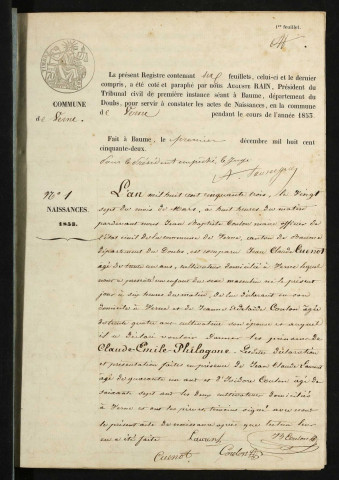 1er feuillet.
La présent Registre contenant six feuillets, celui-ci et le dernier
compris, a été coté et paraphé par nous Auguste RAIN, Président du
Tribunal civil de première instance séant à Baume, département du
Doubs, pour servir à constater les actes de Naissances, en la commune
de Verne pendant le cours de l'année 1853.
COMMUNE
de Verne.
Fait à Baume, le premier décembre mil huit cent
cinquante-deux.
Pour le Président empêché, le Juge
N° 1
NAISSANCES.
1853.
L'an mil huit cent cinquante trois, le vingt
sept du mois de Mars, à huit heures du matin
pardevant nous Jean Baptiste Coulon maire officier de
l'état civil de la commune de Verne, canton de Baume
département du Doubs, est comparu Jean Claude Cuenot
âgé de trente un ans, cultivateur domicilié à Verne lequel
nous a présenté un enfant du sexe masculin né le présent
jour à six heures du matin, de lui déclarant en son
domicile à Verne et de Jeanne Adelaide Coulon âgée
de trente quatre ans cultivatrice son épouse et auquel
il a déclaré vouloir donner les prénoms de
Claude-Emile-Philogone. Lesdites déclaration
et présentation faites en présence de Jean Claude Laurent
âgé de quarante un ans et d'Isidore Coulon âgé de
soixante sept ans les deux cultivateurs domiciliés
à Verne et ont les père et témoins signé avec nous
le présent acte de naissance après que lecture leur
en a été faite.
Laurent
JB Coulon
Cuenot
Coulon